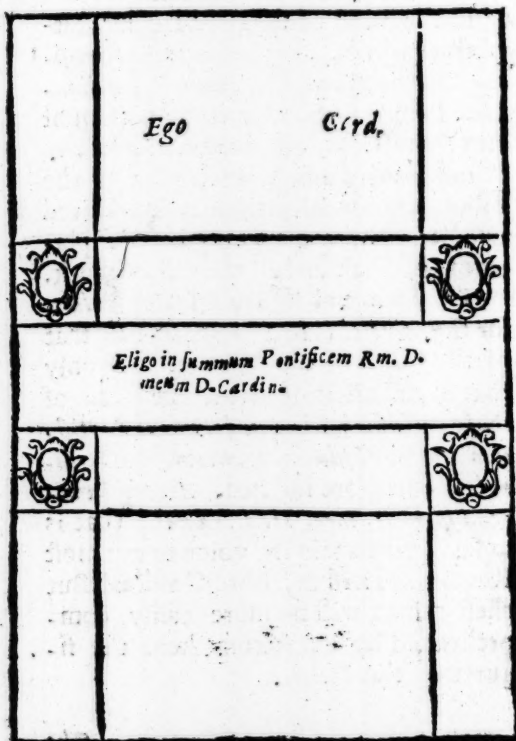 Ego Card.
Eligo in ſummum Pontificem Rm. D.
meum D. Cardin.